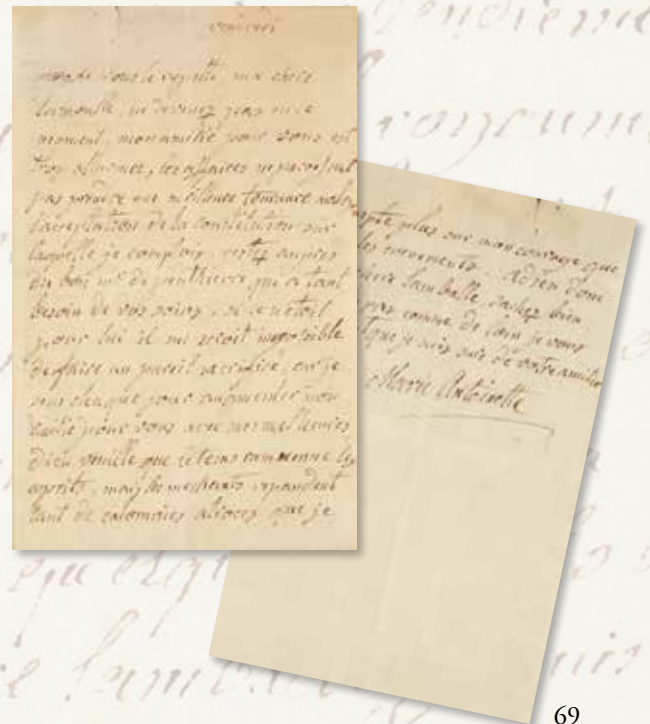 vendredi
vous le repette, ma chere
Lamballe, ne revenez pas en ce
moment, mon amitié pour vous est
trop alarmée, les affaires ne paroissent
pas prendre une meilleure tournure
l'acceptation de la constitution sur
laquelle je comptois, restez auprès
du bon mr de penthievre qui a tant
besoin de vos soins, si ce n'etoit
pour lui il me seroit impossible
de faire un pareil sacrifice, car je
sens chaque jour augmenter mon
amitié pour vous avec mes malheurs
dieu veuille que le tems ramenne les
esprits, mais les mechants repandent
tant de calomnies atroces que je
plus sur mon courage que
les evenements. Adieu donc
chere lamballe sachez bien
près comme de loin je vous
que je suis sur de votre amitié
Marie Antoinette
69